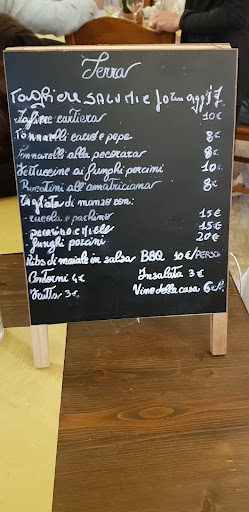 Terra
Tagliere SALUMI e formaggi 7
Tagliere cartiera 10€
Tonnarelli cacio e pepe 8€
Tonnarelli alla pecorara 8€
Fettuccine ai funghi porcini 10€
Bucatini all'amatriciana 8€
Tagliata di manzo con:
- rucola e pachino 15€
- pecorino e miele 15€
- funghi porcini 20€
Ribs di maiale in salsa BBQ 10€/PERSONA
Contorni 4€ Insalata 3€
Frutta 3€ Vino della casa 6€